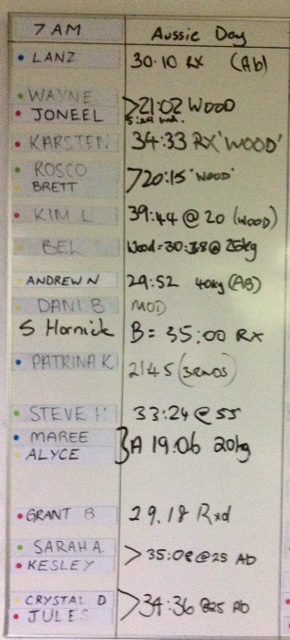 7 AM Aussie Day
LANZ 30.10 RX (Ab)
WAYNE
JONEEL >21:02 WOOD
KARSTEN 34:33 RX 'WOOD'
ROSCO
BRETT >20:15 'WOOD'
KIM L 39:44 @ 20 (WOOD)
BEL Wood = 30:38 @ 25kg
ANDREW N 29:52 40kg (AB)
DANI B MOD
S Hornick B = 35:00 RX
PATRINA K 2145
STEVE H 33:24 @ 55
MAREE
ALYCE } A 19.06 20kg
GRANT B 29.18 Rxd
SARAH A.
KESLEY >35:08 @ 25 AD
CRYSTAL D
JULES >34:36 @25 AD